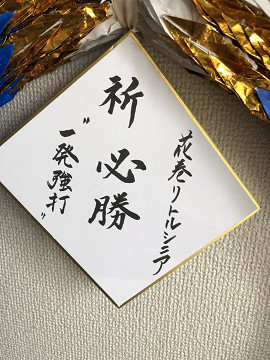 花巻リトルシニア
祈必勝
"一発強打"